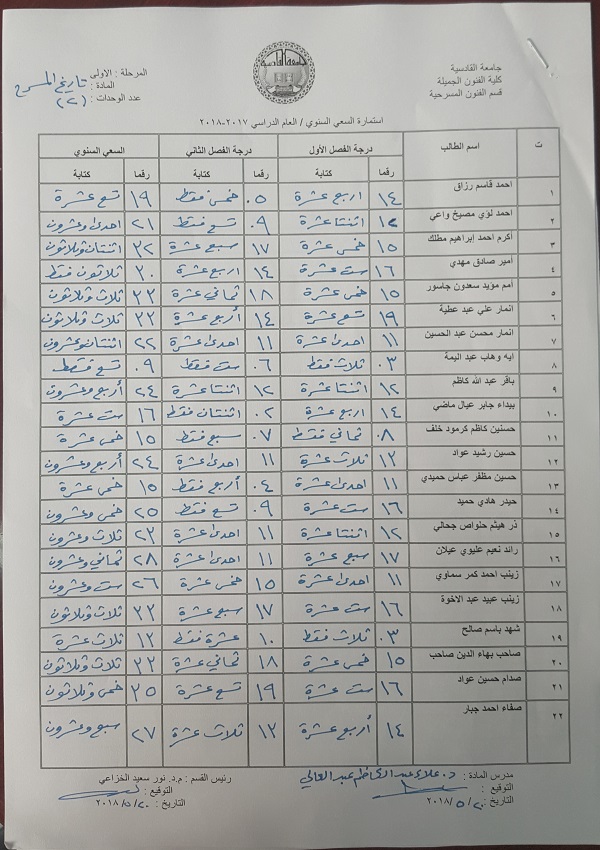 جامعة القادسية
كلية الفنون الجميلة
قسم الفنون المسرحية
جامعة القادسية
المرحلة : الاولى
المادة : تاريخ المسرح
عدد الوحدات : (٢)
استمارة السعي السنوي / العام الدراسي ٢٠١٧-٢٠١٨
ت اسم الطالب درجة الفصل الأول درجة الفصل الثاني السعي السنوي
رقما كتابة رقما كتابة رقما كتابة
١ احمد قاسم رزاق ١٤ اربع عشرة ٠٥ خمس فقط ١٩ تسع عشرة
٢ احمد لؤي مصيخ واعي ١٢ اثنتا عشرة ٠٩ تسع فقط ٢١ احدى وعشرون
٣ أكرم احمد إبراهيم مطلك ١٥ خمس عشرة ١٧ سبع عشرة ٣٢ اثنتان وثلاثون
٤ أمير صادق مهدي ١٦ ست عشرة ١٤ اربع عشرة ٣٠ ثلاثون فقط
٥ أمم مؤيد سعدون جاسور ١٥ خمس عشرة ١٨ ثماني عشرة ٣٣ ثلاث وثلاثون
٦ انمار علي عبد عطية ١٩ تسع عشرة ١٤ أربع عشرة ٣٣ ثلاث وثلاثون
٧ انمار محسن عبد الحسين ١١ احدى عشرة ١١ احدى عشرة ٢٢ اثنتان وعشرون
٨ ايه وهاب عبد اليمة ٠٣ ثلاث فقط ٠٦ ست فقط ٠٩ تسع فقط
٩ باقر عبد الله كاظم ١٢ اثنتا عشرة ١٢ اثنتا عشرة ٢٤ أربع وعشرون
١٠ بيداء جابر عيال ماضي ١٤ اربع عشرة ٠٢ اثنتان فقط ١٦ ست عشرة
١١ حسنين كاظم كرمود خلف ٠٨ ثماني فقط ٠٧ سبع فقط ١٥ خمس عشرة
١٢ حسين رشيد عواد ١٣ ثلاث عشرة ١١ احدى عشرة ٢٤ أربع وعشرون
١٣ حسين مظفر عباس حميدي ١١ احدى عشرة ٠٤ أربع فقط ١٥ خمس عشرة
١٤ حيدر هادي حميد ١٦ ست عشرة ٠٩ تسع فقط ٢٥ خمس وعشرون
١٥ ذر هيثم حلواص جحالي ١٢ اثنتا عشرة ١١ احدى عشرة ٢٣ ثلاث وعشرون
١٦ رائد نعيم عليوي عيلان ١٧ سبع عشرة ١١ احدى عشرة ٢٨ ثماني وعشرون
١٧ زينب احمد كمر سماوي ١١ احدى عشرة ١٥ خمس عشرة ٢٦ ست وعشرون
١٨ زينب عبيد عبد الاخوة ١٦ ست عشرة ١٧ سبع عشرة ٣٣ ثلاث وثلاثون
١٩ شهد باسم صالح ٠٣ ثلاث فقط ١٠ عشرة فقط ١٣ ثلاث عشرة
٢٠ صاحب بهاء الدين صاحب ١٥ خمس عشرة ١٨ ثماني عشرة ٣٣ ثلاث وثلاثون
٢١ صدام حسين عواد ١٦ ست عشرة ١٩ تسع عشرة ٣٥ خمس وثلاثون
٢٢ صفاء احمد جبار ١٤ أربع عشرة ١٣ ثلاث عشرة ٢٧ سبع وعشرون
مدرس المادة : د. علاء عبد الكاظم عبد العالي رئيس القسم : م.د. نور سعيد الخزاعي
التوقيع : التوقيع :
التاريخ : ٢٠١٨/٥/٢٠ التاريخ : ٢٠١٨/٥/٢٠